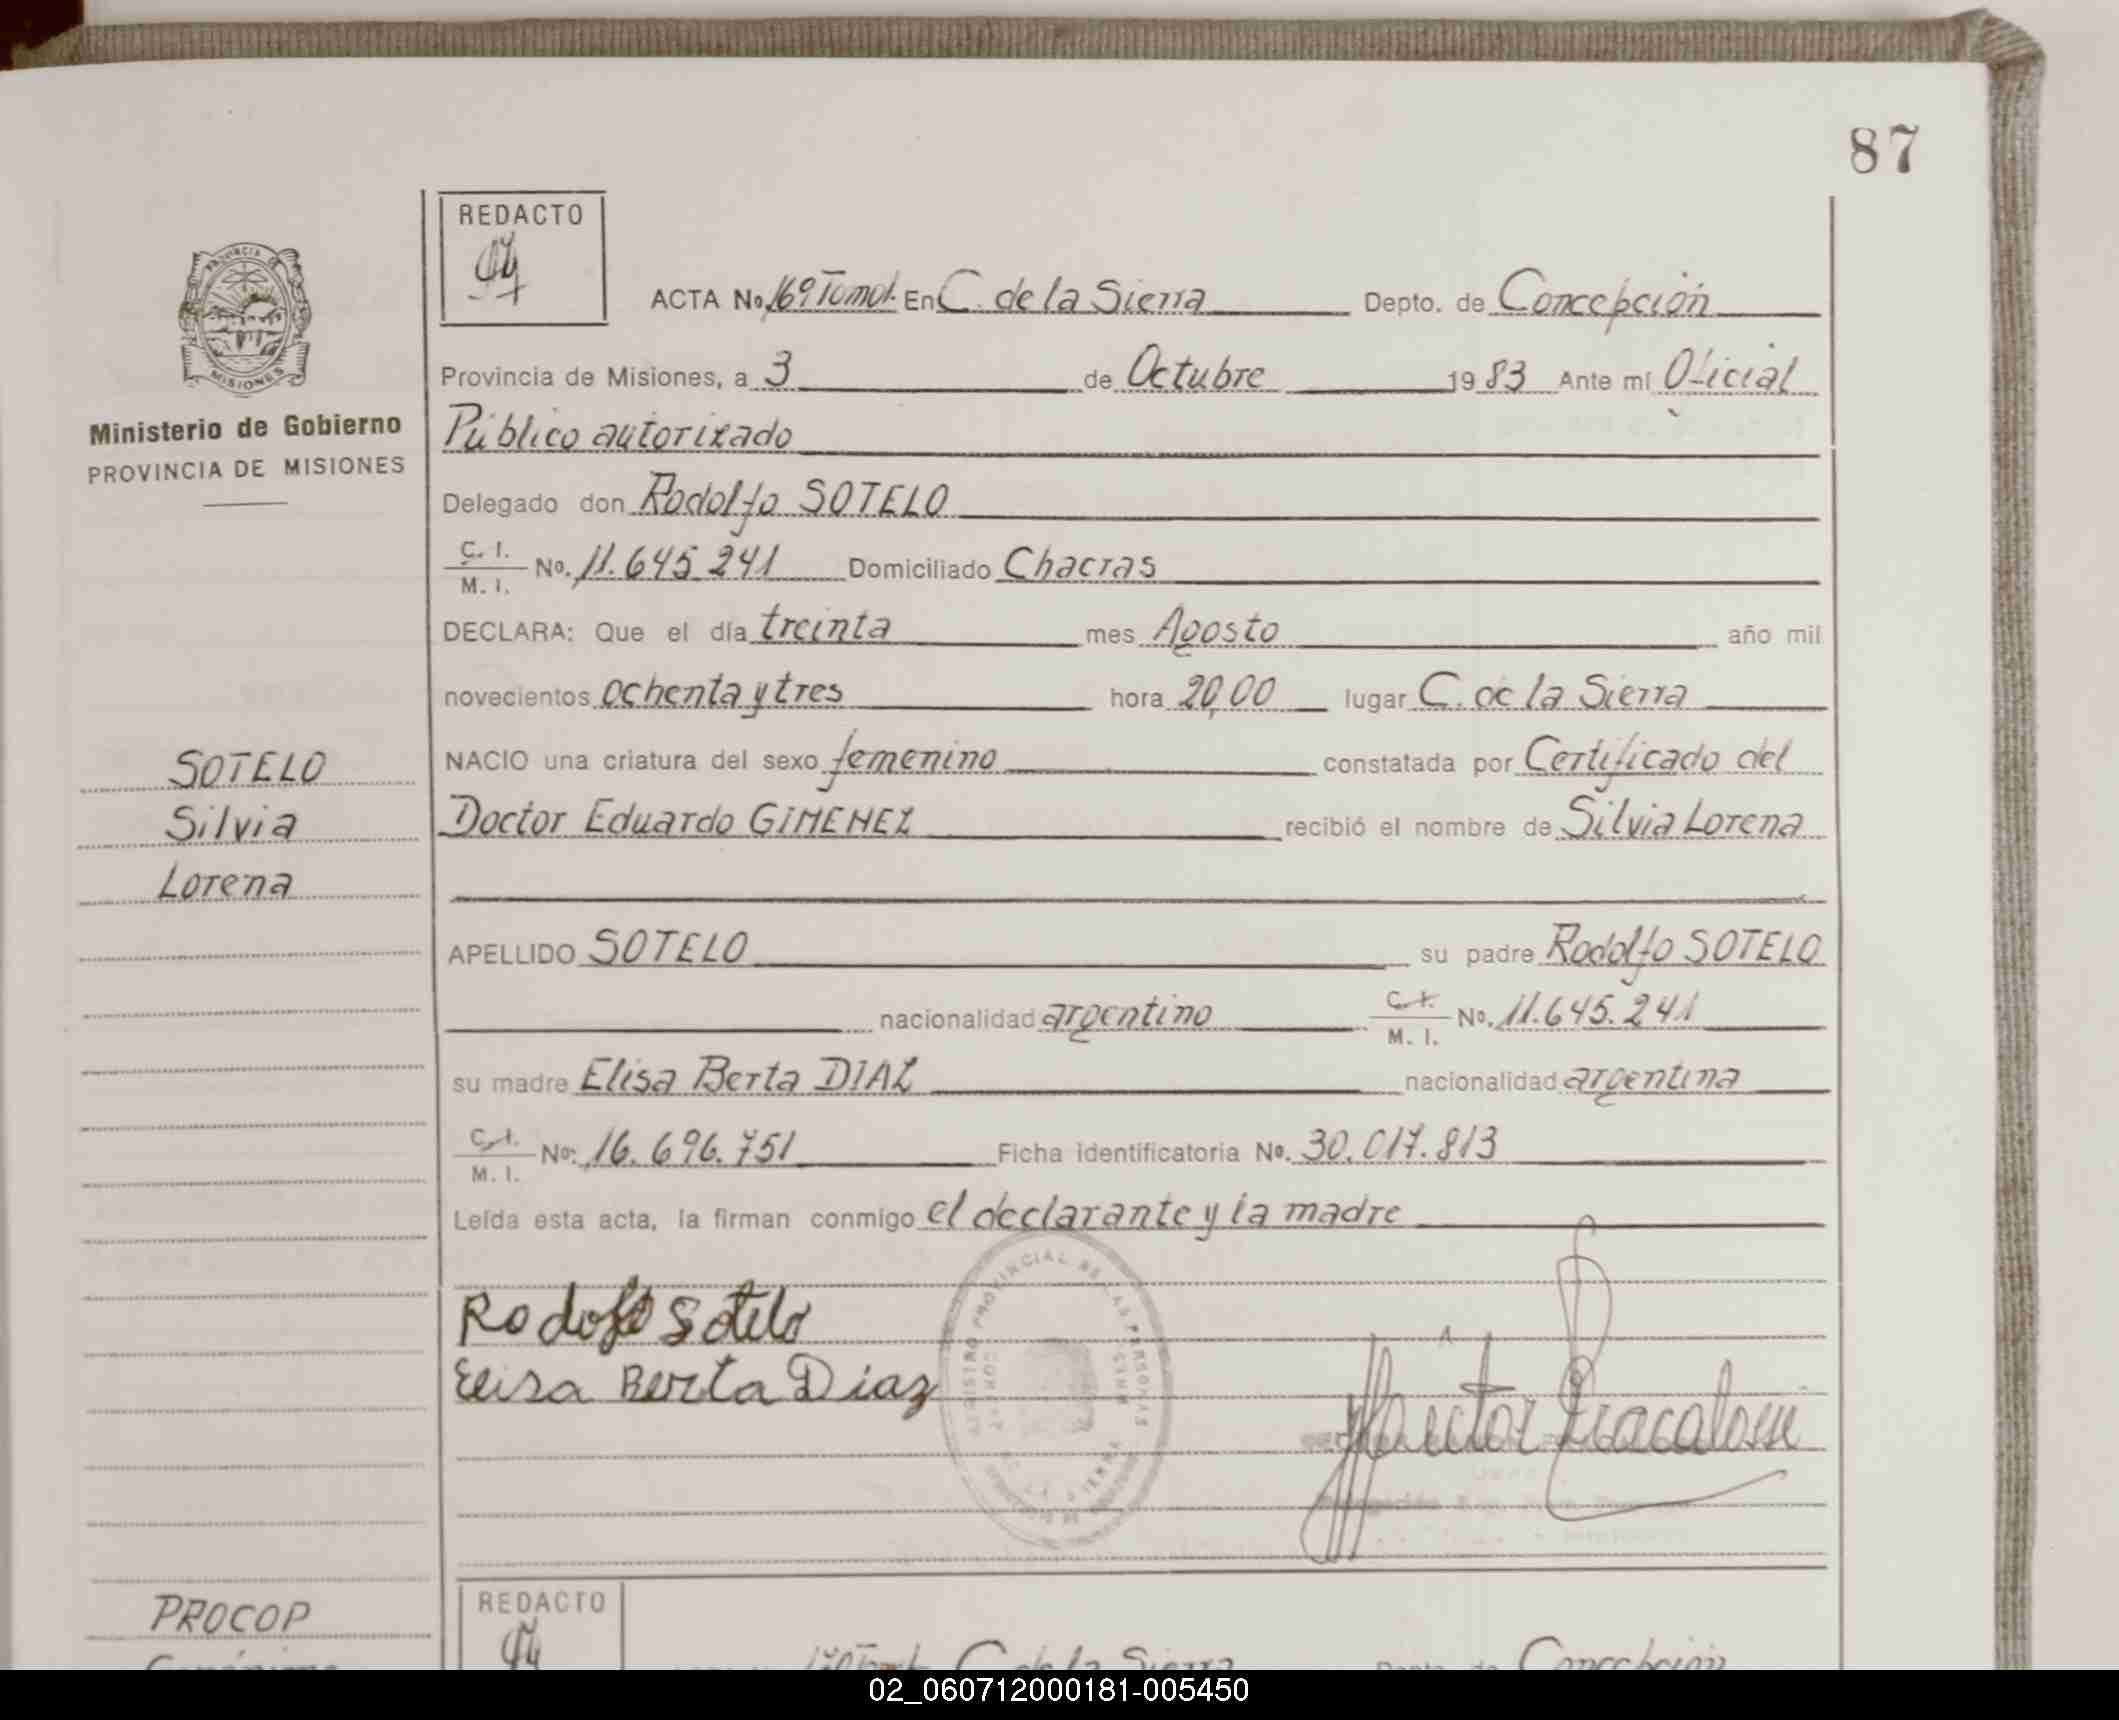 87
REDACTO
PROVINCIA DE
MISIONES
Ministerio de Gobierno
PROVINCIA DE MISIONES
ACTA No. 169 Tomo I. En C. de la Sierra Depto. de Concepción
Provincia de Misiones, a 3 de Octubre 1983 Ante mí Oficial
Público autorizado
Delegado don Rodolfo SOTELO
C. I.
M. I. No. 11.645.241 Domiciliado Chacras
DECLARA: Que el día treinta mes Agosto año mil
novecientos ochenta y tres hora 20,00 lugar C. de la Sierra
NACIO una criatura del sexo femenino constatada por Certificado del
Doctor Eduardo GIMENEZ recibió el nombre de Silvia Lorena
SOTELO
Silvia
Lorena
APELLIDO SOTELO su padre Rodolfo SOTELO
nacionalidad argentino C. I.
M. I. No. 11.645.241
su madre Elisa Berta DIAZ nacionalidad argentina
C. I.
M. I. No: 16.696.751 Ficha identificatoria No. 30.017.813
Leída esta acta, la firman conmigo el declarante y la madre
Rodolfo Sotelo
Elisa Berta Diaz
REGISTRO PROVINCIAL DE LAS PERSONAS
REDACTO
PROCOP
C. de la Sierra Depto. de Concepción
02_060712000181-005450